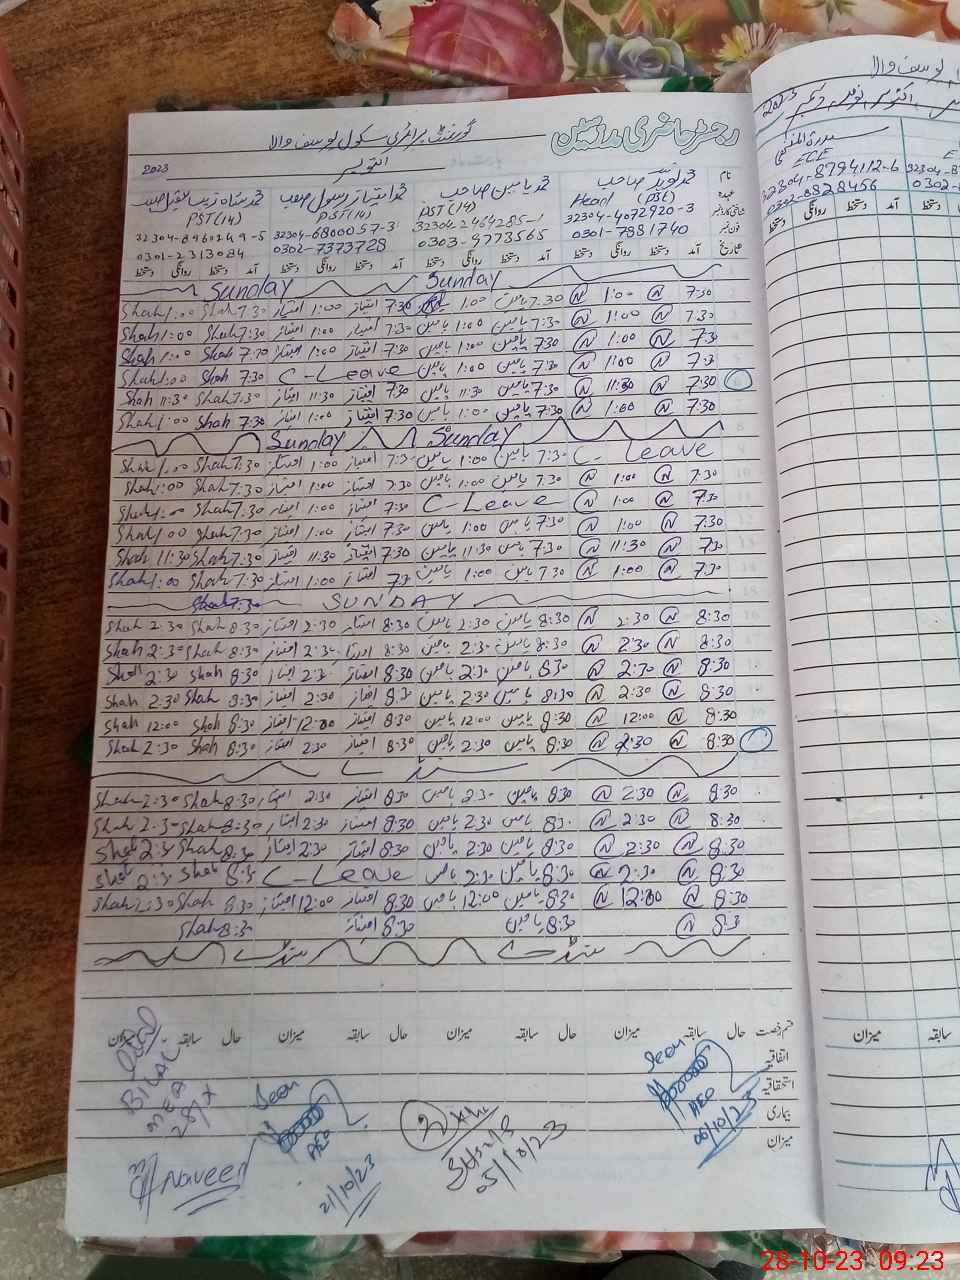 رجسٹر حاضری مدرسین گورنمنٹ پرائمری سکول یوسف والا
اکتوبر 2023
نام محمد نوید صاحب محمد یامین صاحب محمد امتیاز رسول صاحب
عہدہ Head (PST) PST (14) PST (14) PST (14)
شناختی کارڈ نمبر 32304-4072920-3 32304-2464285-1 32304-6800057-3 32304-8960249-5
فون نمبر 0301-7881740 0303-9773565 0302-7373728 0301-2313084
تاریخ آمد دستخط روانگی دستخط آمد دستخط روانگی دستخط آمد دستخط روانگی دستخط آمد دستخط روانگی دستخط
Sunday Sunday
7:30 N 1:00 N 7:30 یامین 1:00 7:30 امتیاز 1:00 امتیاز 7:30 Shah 1:00 Shah
7:30 N 1:00 N 7:30 یامین 1:00 یامین 7:30 امتیاز 1:00 امتیاز 7:30 Shah 1:00 Shah
7:30 N 1:00 N 7:30 یامین 1:00 یامین 7:30 امتیاز 1:00 امتیاز 7:30 Shah 1:00 Shah
7:30 N 1:00 N 7:30 یامین 1:00 یامین C-Leave 7:30 Shah 1:00 Shah
7:30 N 11:30 N 7:30 یامین 11:30 یامین 7:30 امتیاز 11:30 امتیاز 7:30 Shah 11:30 Shah
7:30 N 1:00 N 7:30 یامین 1:00 یامین 7:30 امتیاز 1:00 امتیاز 7:30 Shah 1:00 Shah
Sunday Sunday
C-Leave 7:30 یامین 1:00 یامین 7:30 امتیاز 1:00 امتیاز 7:30 Shah 1:00 Shah
7:30 N 1:00 N 7:30 یامین 1:00 یامین 7:30 امتیاز 1:00 امتیاز 7:30 Shah 1:00 Shah
7:30 N 1:00 N C-Leave 7:30 امتیاز 1:00 امتیاز 7:30 Shah 1:00 Shah
7:30 N 1:00 N 7:30 یامین 1:00 یامین 7:30 امتیاز 1:00 امتیاز 7:30 Shah 1:00 Shah
7:30 N 11:30 N 7:30 یامین 11:30 یامین 7:30 امتیاز 11:30 امتیاز 7:30 Shah 11:30 Shah
7:30 N 1:00 N 7:30 یامین 1:00 یامین 7:30 امتیاز 1:00 امتیاز 7:30 Shah 1:00 Shah
SUNDAY
8:30 N 2:30 N 8:30 یامین 2:30 یامین 8:30 امتیاز 2:30 امتیاز 8:30 Shah 2:30 Shah
8:30 N 2:30 N 8:30 یامین 2:30 یامین 8:30 امتیاز 2:30 امتیاز 8:30 Shah 2:30 Shah
8:30 N 2:30 N 8:30 یامین 2:30 یامین 8:30 امتیاز 2:30 امتیاز 8:30 Shah 2:30 Shah
8:30 N 2:30 N 8:30 یامین 2:30 یامین 8:30 امتیاز 2:30 امتیاز 8:30 Shah 2:30 Shah
8:30 N 12:00 N 8:30 یامین 12:00 یامین 8:30 امتیاز 12:00 امتیاز 8:30 Shah 12:00 Shah
8:30 N 2:30 N 8:30 یامین 2:30 یامین 8:30 امتیاز 2:30 امتیاز 8:30 Shah 2:30 Shah
سنڈے
8:30 N 2:30 N 8:30 یامین 2:30 یامین 8:30 امتیاز 2:30 امتیاز 8:30 Shah 2:30 Shah
8:30 N 2:30 N 8:30 یامین 2:30 یامین 8:30 امتیاز 2:30 امتیاز 8:30 Shah 2:30 Shah
8:30 N 2:30 N 8:30 یامین 2:30 یامین 8:30 امتیاز 2:30 امتیاز 8:30 Shah 2:30 Shah
8:30 N 2:30 N 8:30 یامین 2:30 یامین C-Leave 8:30 Shah 2:30 Shah
8:30 N 12:00 N 8:30 یامین 12:00 یامین 8:30 امتیاز 12:00 امتیاز 8:30 Shah 2:30 Shah
8:30 N 8:30 یامین 8:30 امتیاز 8:30 Shah
سنڈے سنڈے
قسم رخصت حال سابقہ میزان حال سابقہ میزان حال سابقہ میزان حال سابقہ میزان
اتفاقیہ
استحقاقیہ
بیماری
میزان
Seen
AEO
06/10/23
05/10/23
Seen
AEO
21/10/23
BILAL
MEA
Naveed
یوسف والا
اکتوبر نومبر دسمبر 2023
سدرۃ المنتہیٰ
ECE
32304-8794112-6
0302-8828456
دستخط روانگی دستخط
میزان سابقہ
28-10-23 09:23